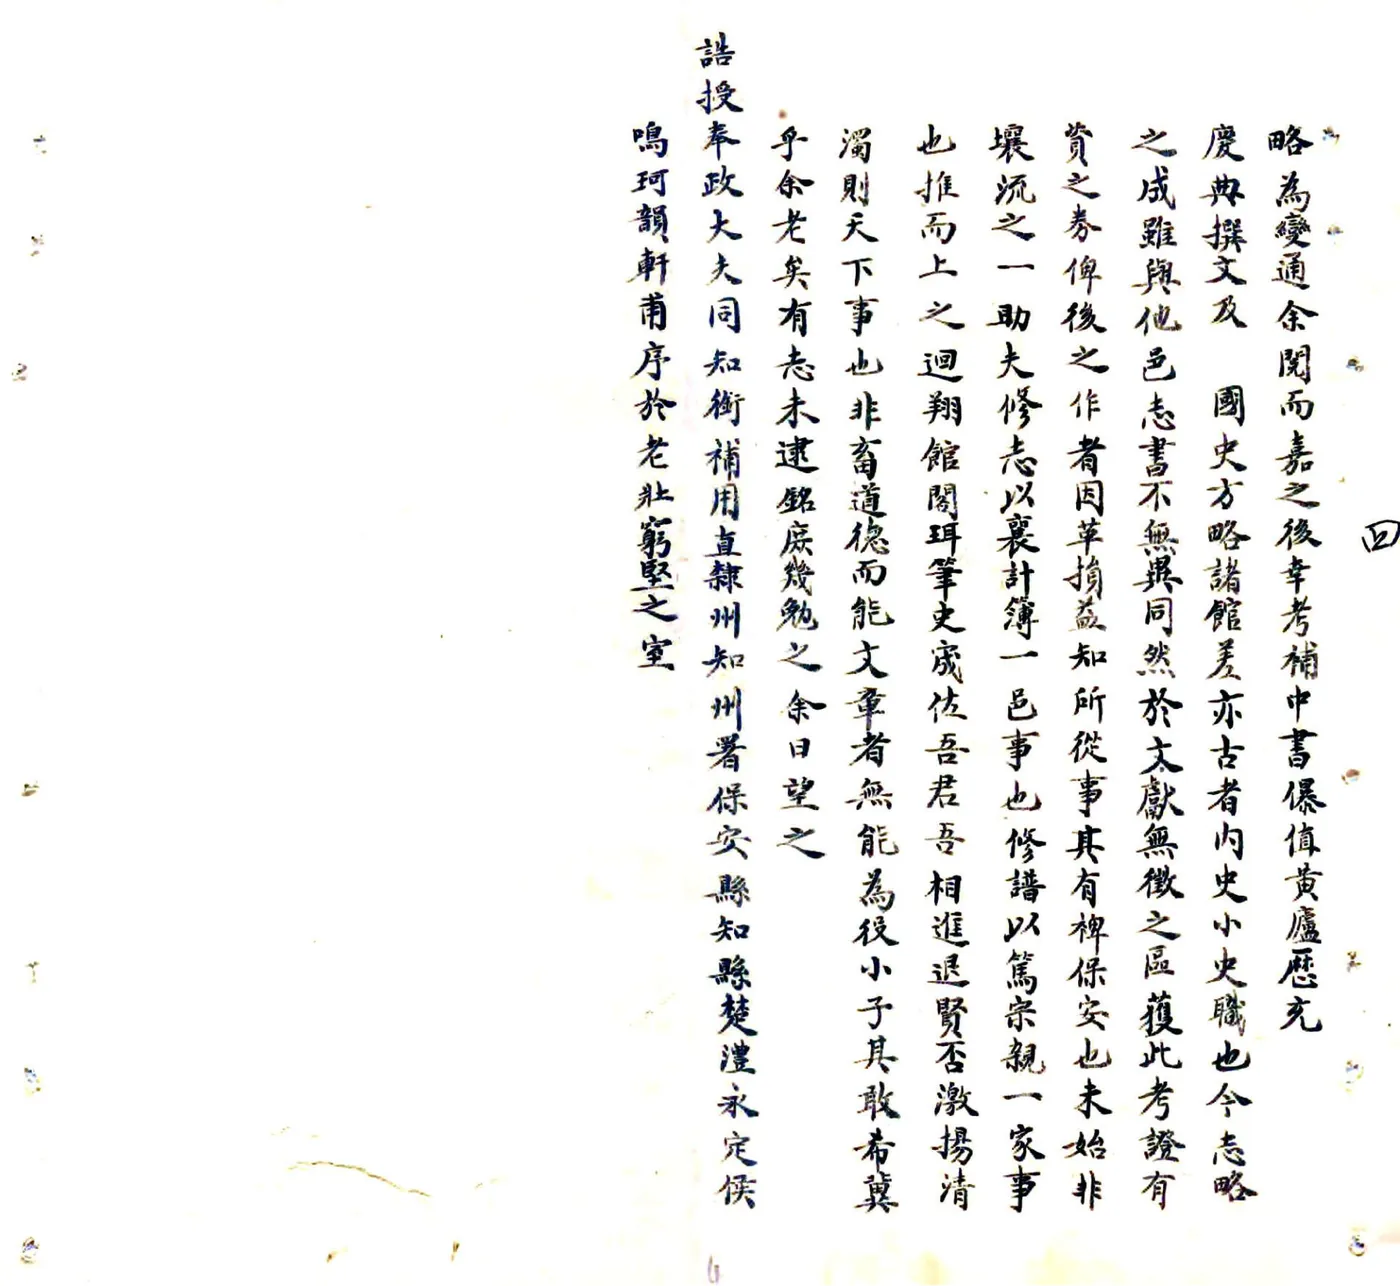 四
略為變通余閱而嘉之後幸考補中書儤值黃廬歷充
慶典撰文及　國史方略諸館差亦古者內史小史職也今志略
之成雖與他邑志書不無異同然於文獻無徵之區獲此考證有
資之券俾後之作者因革損益知所從事其有裨保安也未始非
壤流之一助夫修志以襄計簿一邑事也修譜以篤宗親一家事
也推而上之迴翔館閣珥筆史宬佐吾君吾相進退賢否激揚清
濁則天下事也非畜道德而能文章者無能為役小子其敢希冀
乎余老矣有志未逮銘庶幾勉之余日望之
誥授奉政大夫同知銜補用直隸州知州署保安縣知縣楚澧永定侯
鳴珂韻軒甫序於老壯窮堅之室